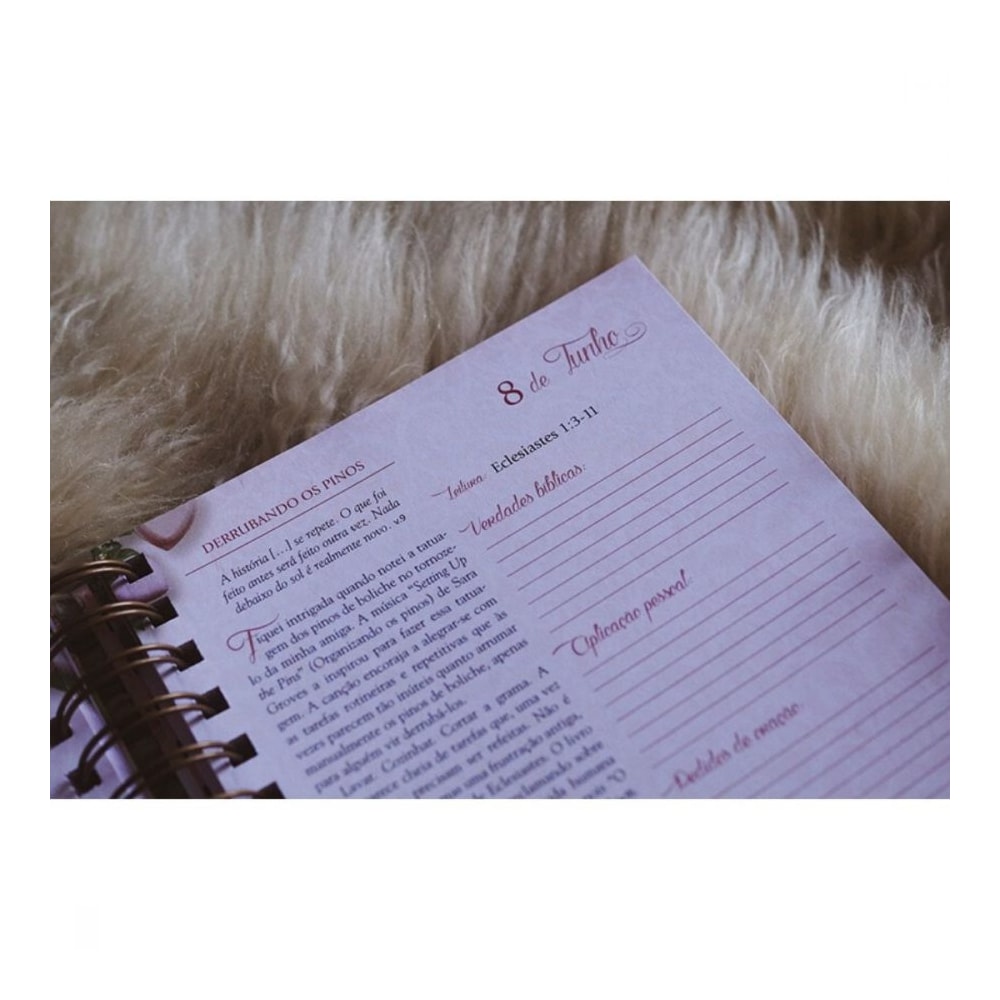 8 de Junho
DERRUBANDO OS PINOS
A história [...] se repete. O que foi
feito antes será feito outra vez. Nada
debaixo do sol é realmente novo. v.9
Fiquei intrigada quando notei a tatua-
gem dos pinos de boliche no tornoze-
lo da minha amiga. A música "Setting Up
the Pins" (Organizando os pinos) de Sara
Groves a inspirou para fazer essa tatua-
gem. A canção encoraja a alegrar-se com
as tarefas rotineiras e repetitivas que às
vezes parecem tão inúteis quanto arrumar
manualmente os pinos de boliche, apenas
para alguém vir derrubá-los.
Lavar. Cozinhar. Cortar a grama. A
parece cheia de tarefas que, uma vez
precisam ser refeitas. Não é
uma frustração antiga,
de Eclesiastes. O livro
clamando sobre
humana
"O
Leitura: Eclesiastes 1:3-11
Verdades bíblicas:
Aplicação pessoal:
Pedidos de oração: